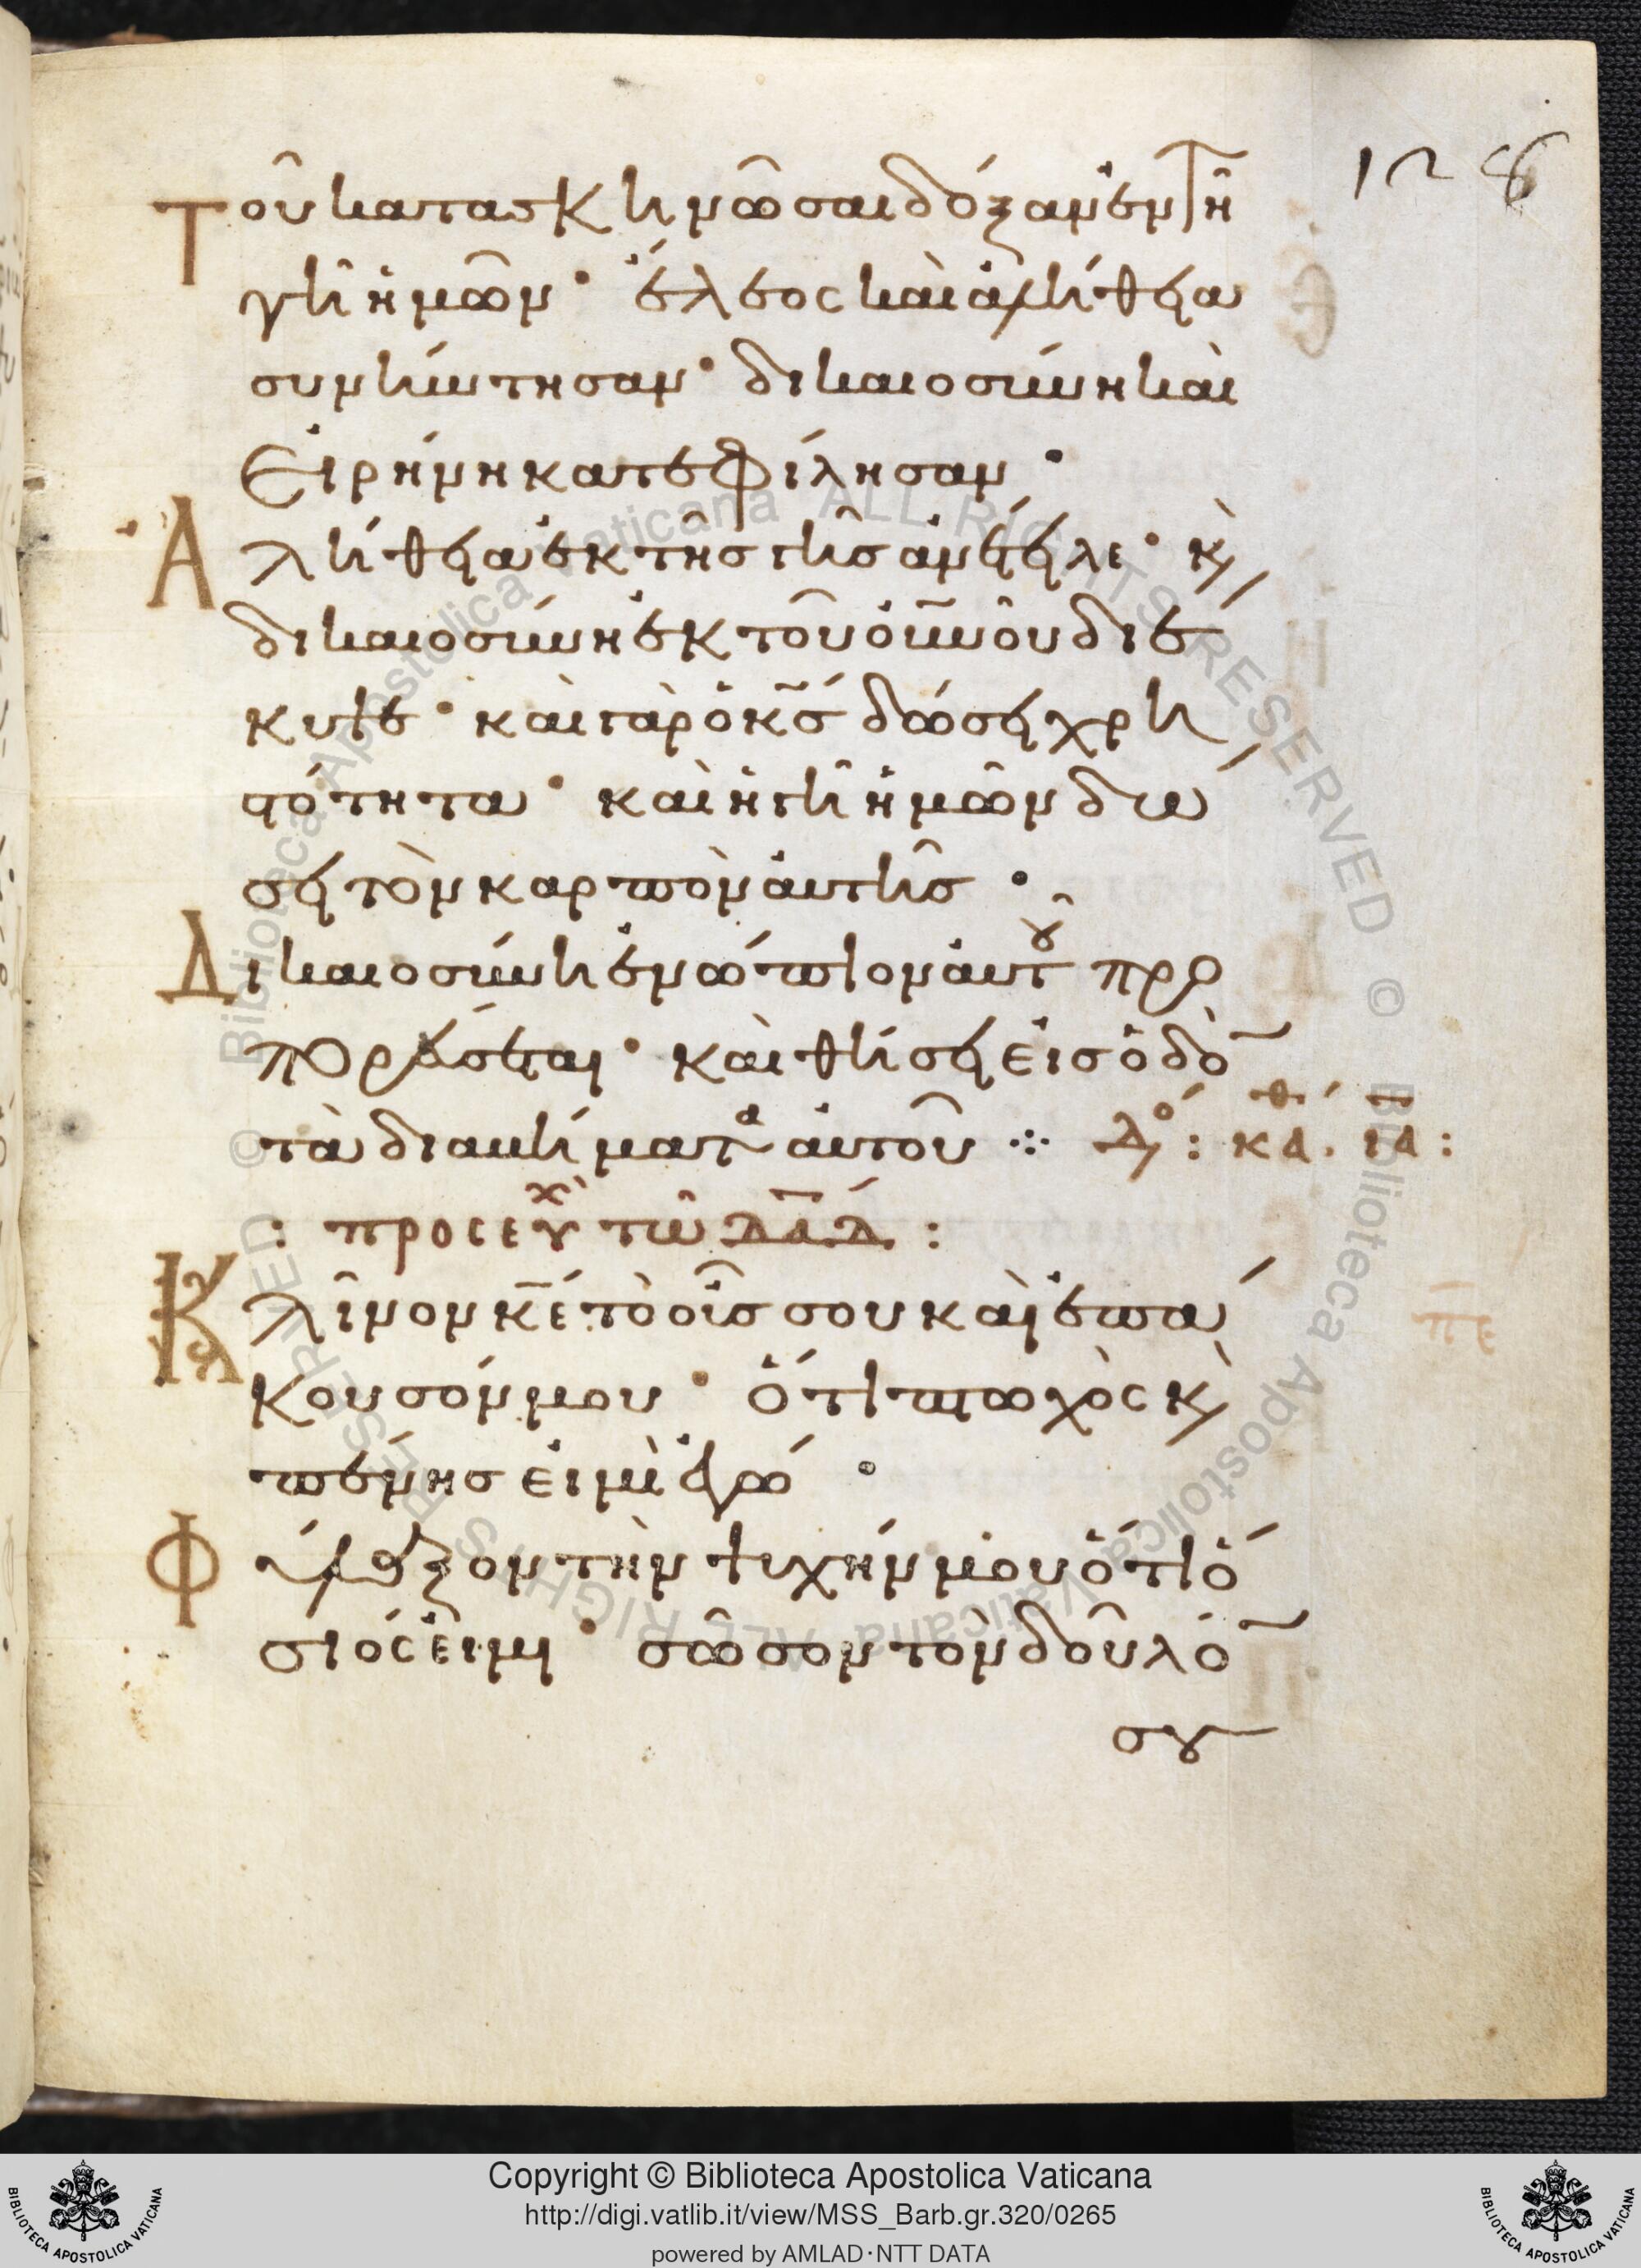 128
Τοῦ κατασκηνῶσαι δόξαν ἐν τῆ
γῆ ἡμῶν· ἔλεος καὶ ἀλήθεια
συνήντησαν· δικαιοσύνη καὶ
εἰρήνη κατεφίλησαν·
Ἀλήθεια ἐκ τῆς γῆς ἀνέτειλε· κ̀
δικαιοσύνη ἐκ τοῦ οὐ̅νοῦ διέ
κυψε· καὶ γὰρ ὁ κ̅σ δώσει χρη
στότητα· καὶ ἡ γῆ ἡμῶν δώ
σει τὸν καρπὸν αὐτῆς·
Δικαιοσύνη ἐνώπιον αὐτοῦ προ
πορεύσεται· καὶ θήσει εἰς ὁδὸ̅
τὰ διαβήματα αὐτοῦ ⁘ Δο : ΚΑ. ΙΑ :
: προσευχ τῶ Δ̅Α̅Δ̅ :
Κλῖνον κ̅ε τὸ οὖς σου καὶ ἐπά
κουσόν μου· ὅτι πτωχὸς κ̀
πένης εἰμὶ ἐγώ·
π̅ε̅
Φύλαξον τὴν ψυχήν μου ὅτι ὅ
σιός εἰμι· σῶσον τὸν δοῦλό̅
σου
Copyright © Biblioteca Apostolica Vaticana
http://digi.vatlib.it/view/MSS_Barb.gr.320/0265
powered by AMLAD·NTT DATA
BIBLIOTECA APOSTOLICA VATICANA
BIBLIOTECA APOSTOLICA VATICANA
© Biblioteca Apostolica Vaticana ALL RIGHTS RESERVED © Biblioteca Apostolica Vaticana ALL RIGHTS RESERVED